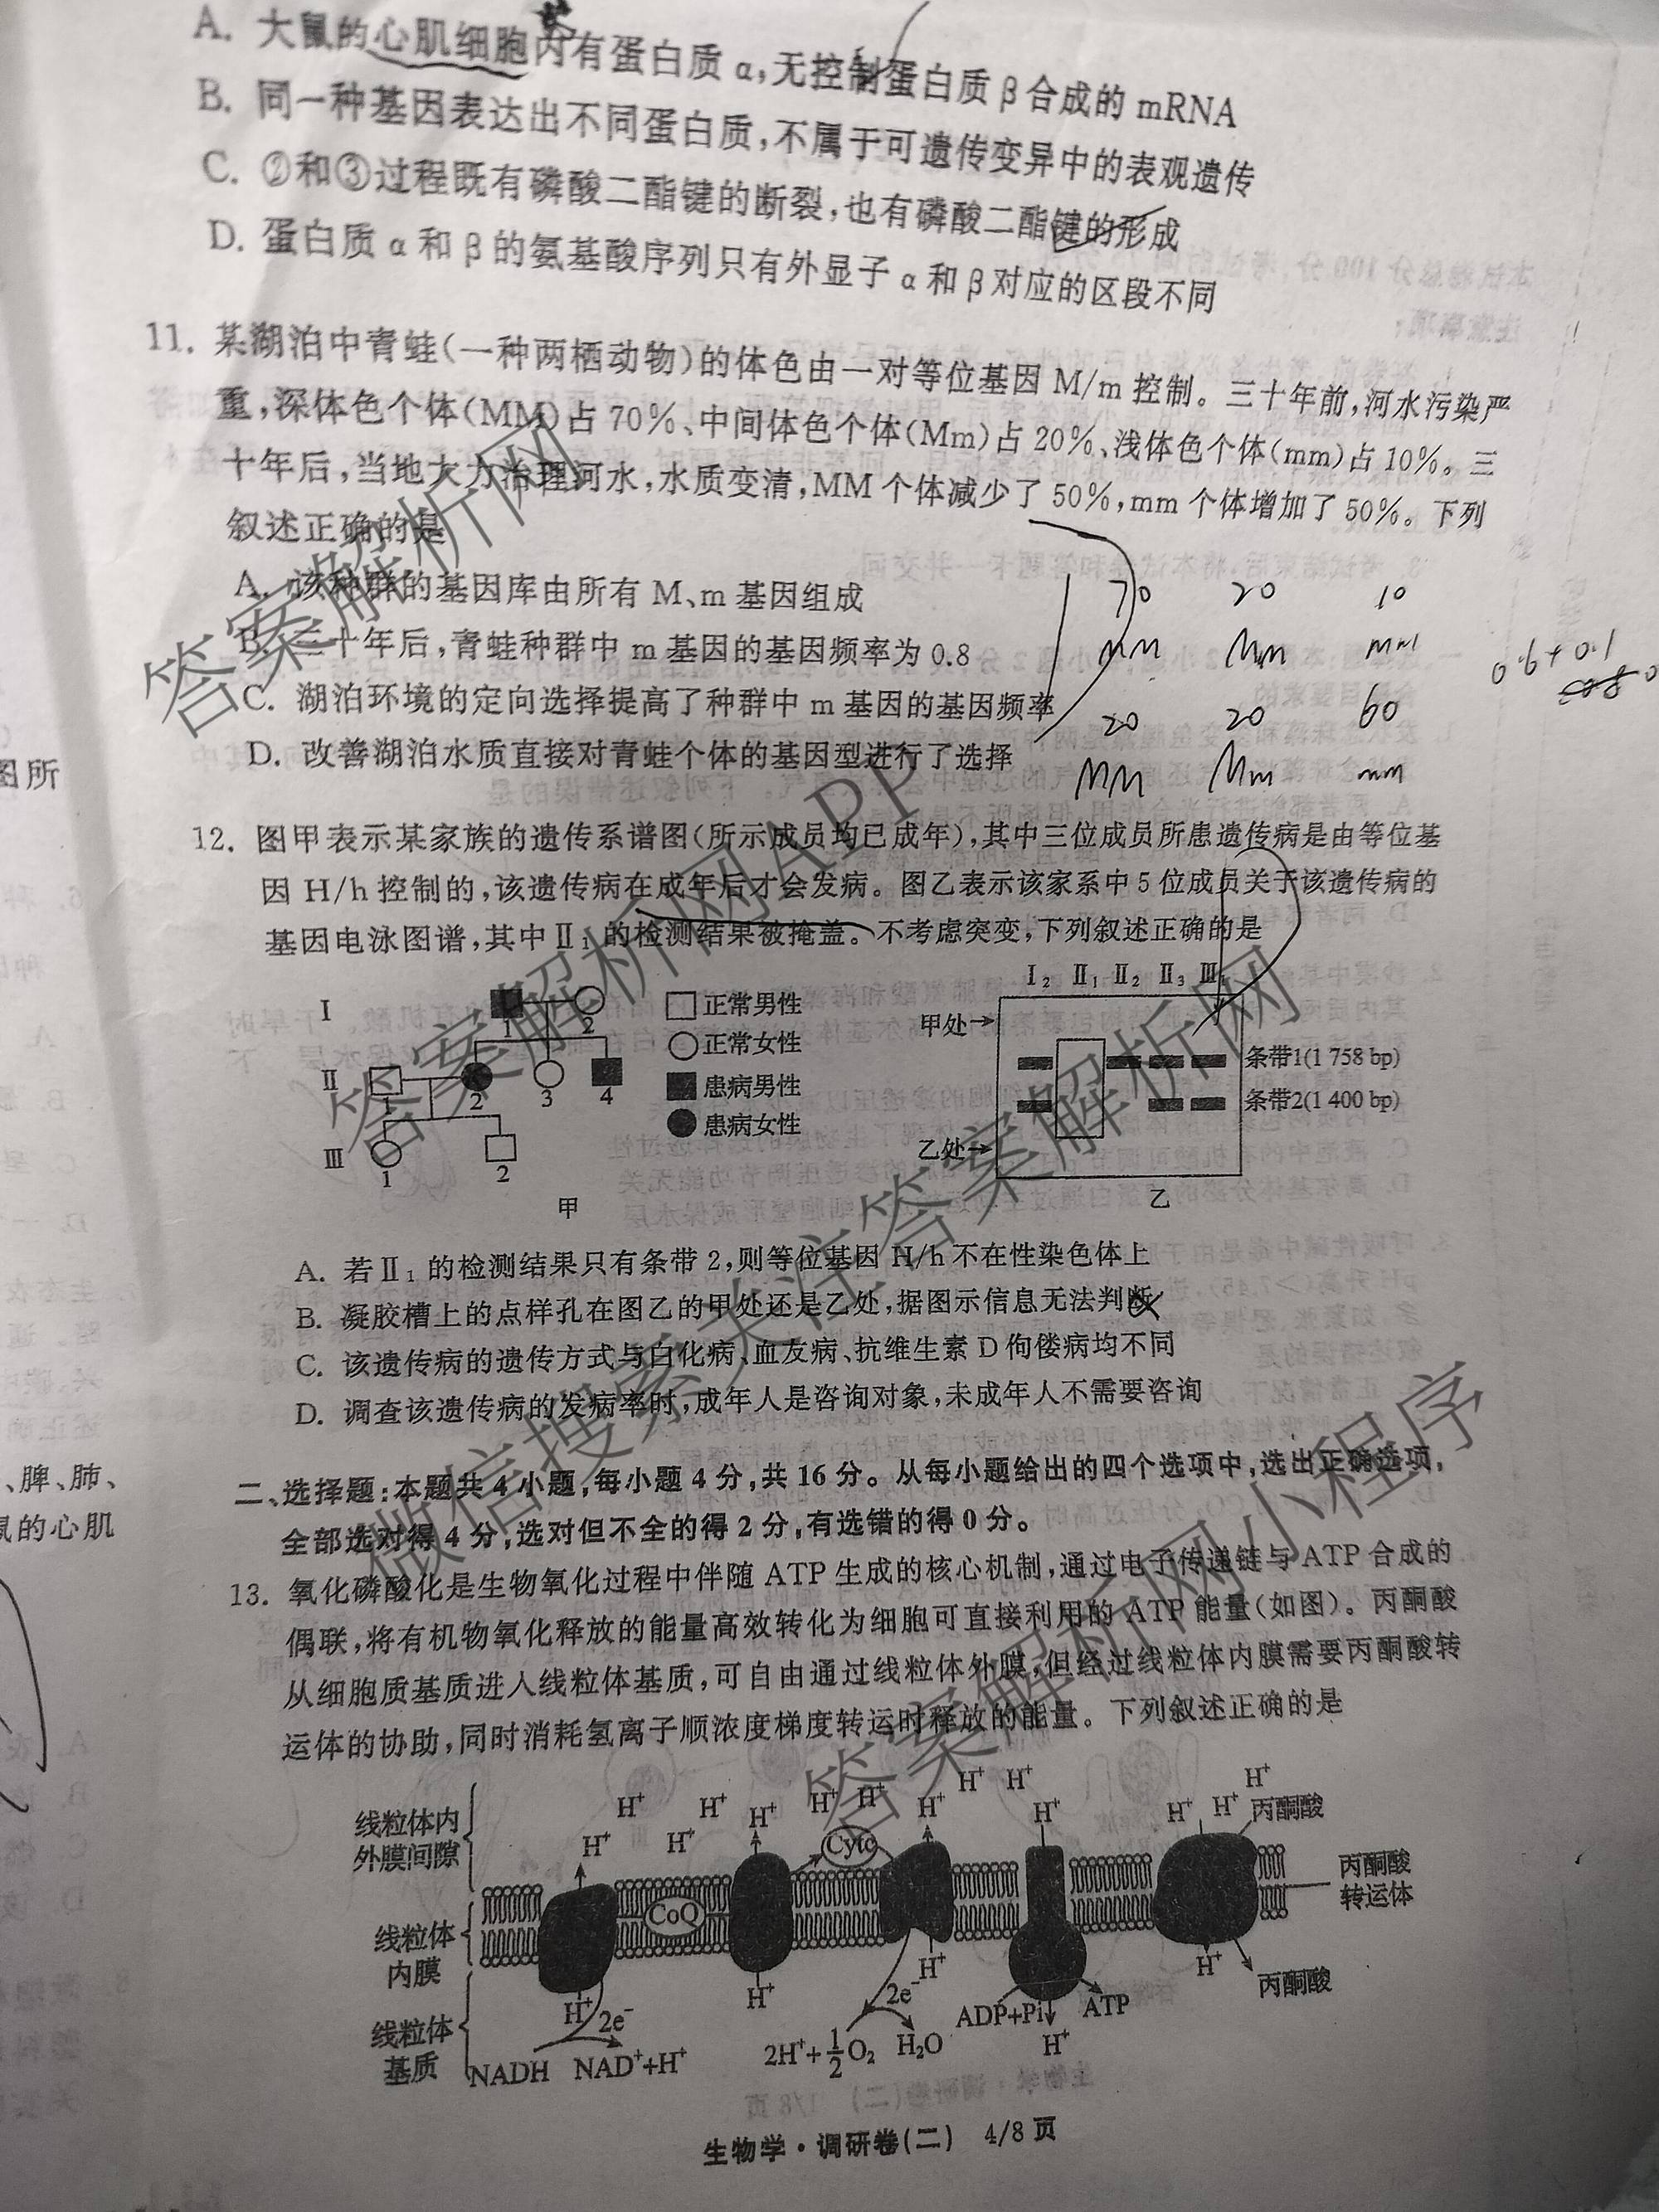 A. 大鼠的心肌细胞内有蛋白质 α,无控制蛋白质 β 合成的 mRNA
B. 同一种基因表达出不同蛋白质,不属于可遗传变异中的表观遗传
C. ②和③过程既有磷酸二酯键的断裂,也有磷酸二酯键的形成
D. 蛋白质 α 和 β 的氨基酸序列只有外显子 α 和 β 对应的区段不同
11. 某湖泊中青蛙(一种两栖动物)的体色由一对等位基因 M/m 控制。三十年前,河水污染严
重,深体色个体(MM)占 70%、中间体色个体(Mm)占 20%、浅体色个体(mm)占 10%。三
十年后,当地大力治理河水,水质变清,MM 个体减少了 50%,mm 个体增加了 50%。下列
叙述正确的是
A. 该种群的基因库由所有 M、m 基因组成
B. 三十年后,青蛙种群中 m 基因的基因频率为 0.8
C. 湖泊环境的定向选择提高了种群中 m 基因的基因频率
D. 改善湖泊水质直接对青蛙个体的基因型进行了选择
70 20 10
MM Mm mm
20 20 60
MM Mm mm
0.6+0.1
图所
12. 图甲表示某家族的遗传系谱图(所示成员均已成年),其中三位成员所患遗传病是由等位基
因 H/h 控制的,该遗传病在成年后才会发病。图乙表示该家系中 5 位成员关于该遗传病的
基因电泳图谱,其中Ⅱ₁ 的检测结果被掩盖。不考虑突变,下列叙述正确的是
Ⅰ 1 2
Ⅱ 1 2 3 4
Ⅲ 1 2
甲
正常男性
正常女性
患病男性
患病女性
Ⅰ₂ Ⅱ₁ Ⅱ₂ Ⅱ₃ Ⅲ₁
甲处
条带1(1 758 bp)
条带2(1 400 bp)
乙处
乙
A. 若Ⅱ₁ 的检测结果只有条带 2,则等位基因 H/h 不在性染色体上
B. 凝胶槽上的点样孔在图乙的甲处还是乙处,据图示信息无法判断
C. 该遗传病的遗传方式与白化病、血友病、抗维生素 D 佝偻病均不同
D. 调查该遗传病的发病率时,成年人是咨询对象,未成年人不需要咨询
、脾、肺、
鼠的心肌
二、选择题:本题共 4 小题,每小题 4 分,共 16 分。从每小题给出的四个选项中,选出正确选项,
全部选对得 4 分,选对但不全的得 2 分,有选错的得 0 分。
13. 氧化磷酸化是生物氧化过程中伴随 ATP 生成的核心机制,通过电子传递链与 ATP 合成的
偶联,将有机物氧化释放的能量高效转化为细胞可直接利用的 ATP 能量(如图)。丙酮酸
从细胞质基质进入线粒体基质,可自由通过线粒体外膜,但经过线粒体内膜需要丙酮酸转
运体的协助,同时消耗氢离子顺浓度梯度转运时释放的能量。下列叙述正确的是
线粒体内
外膜间隙
H⁺ H⁺ H⁺ H⁺ H⁺ H⁺ H⁺ H⁺ H⁺ H⁺ H⁺ H⁺ H⁺ H⁺
丙酮酸
Cytc
CoQ
线粒体
内膜
丙酮酸
转运体
线粒体
基质
H⁺ H⁺ H⁺ H⁺ H⁺
2e⁻ 2e⁻
NADH NAD⁺+H⁺
2H⁺+½O₂ H₂O
ADP+Pi ATP
丙酮酸
生物学·调研卷(二) 4/8 页
答案解析网
答案解析网APP
微信搜索关注答案解析网
答案解析网小程序